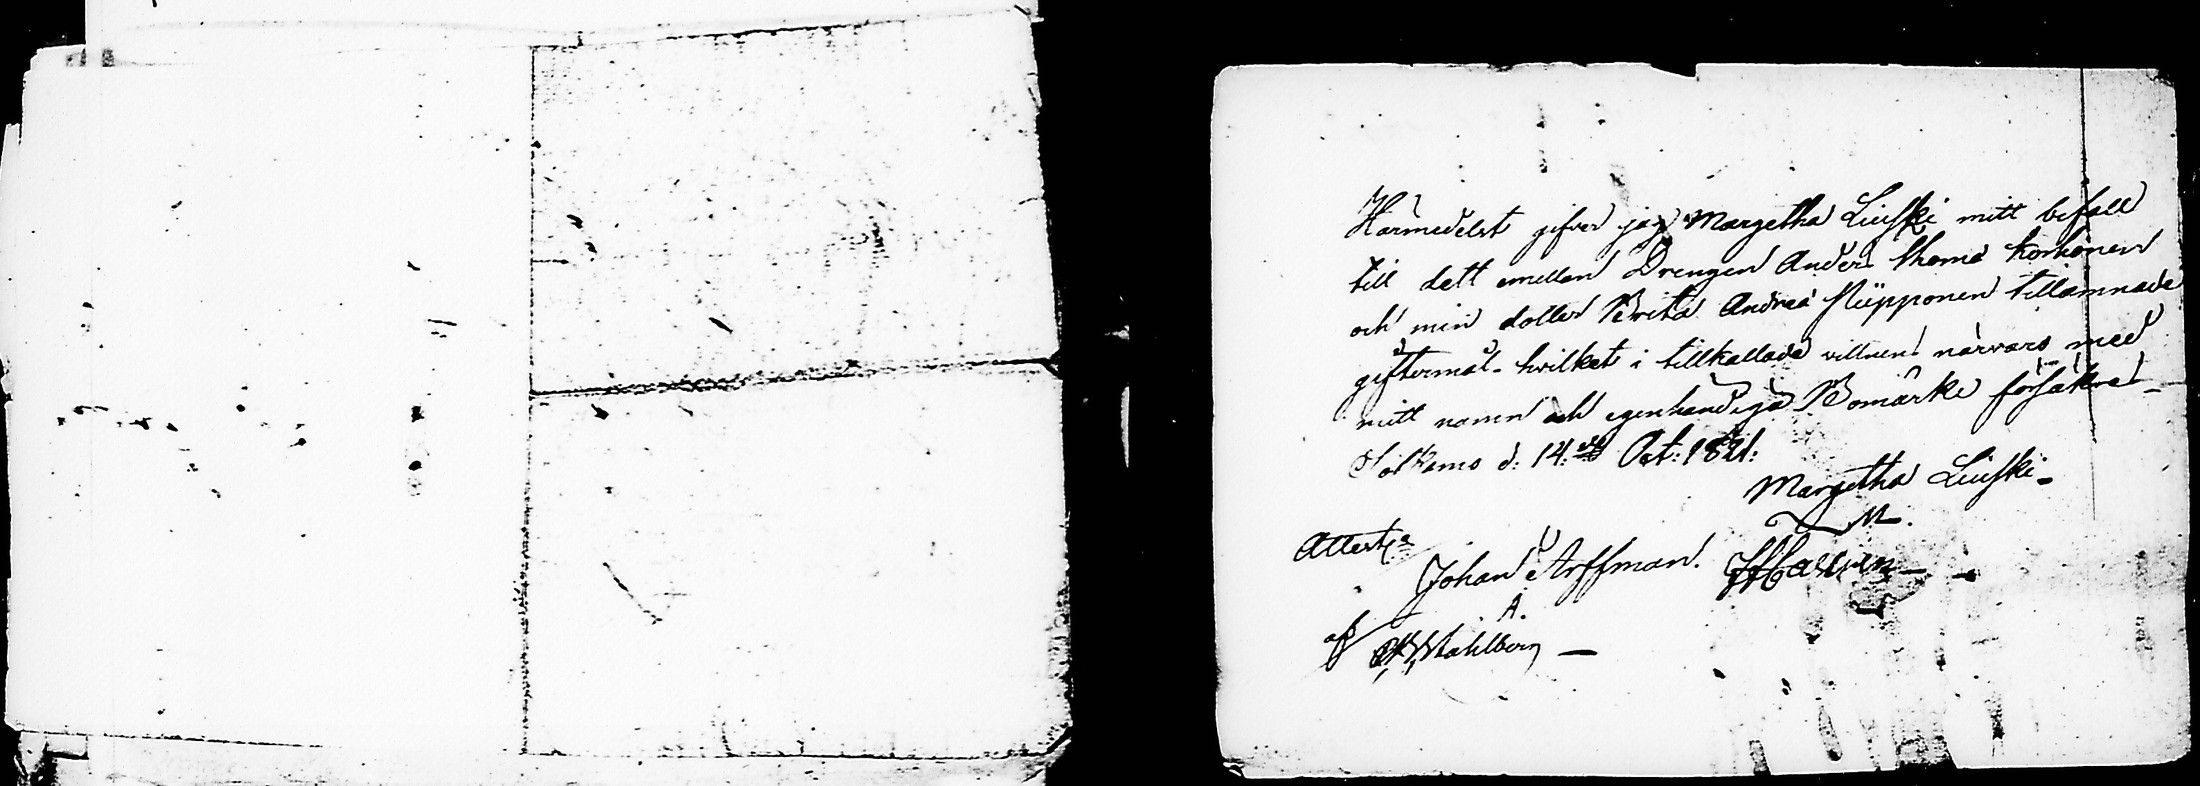 Härmedelst gifver jag Margetha Liuski mitt bifall
till dett emellan Drengen Anders Thoma Korhonen
och min dotter Brita Andrea Niipponen tillämnade
giftermål hvilket i tillkallade vittnens närvaro med
mitt namn och egenhändiga Bomärke försäkras –
Sotkamo d: 14:de Oct: 1821:
Margetha Liuski –
M.
Attestera
Johan Arffman.
A.
af Stahlberg –